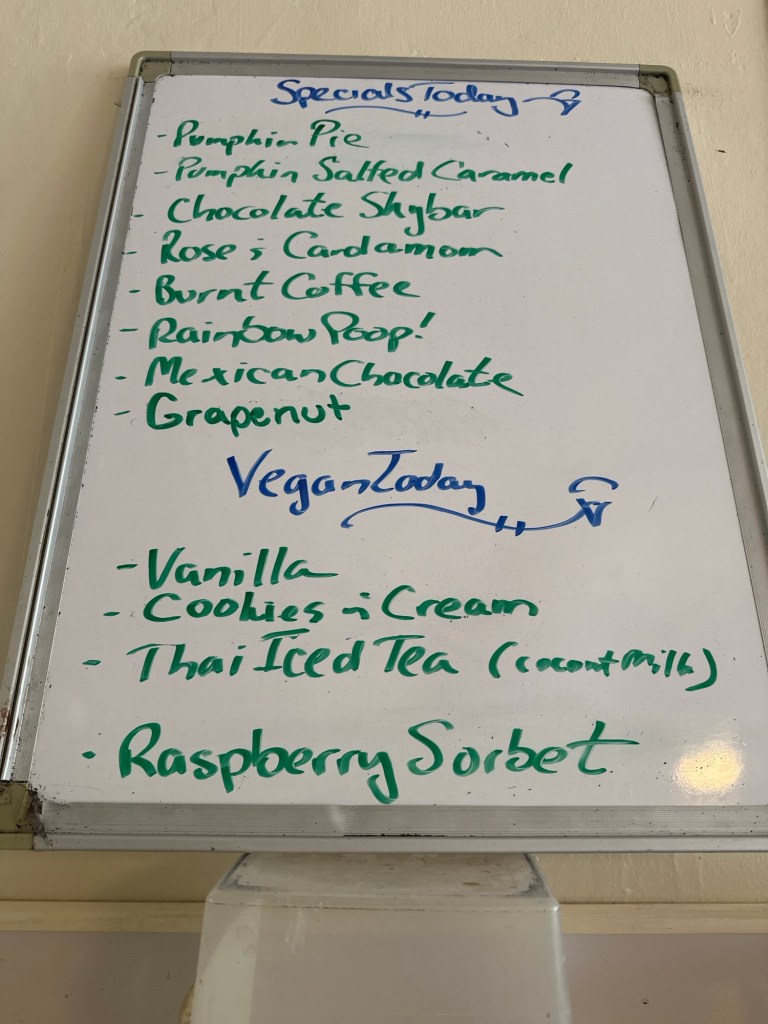 Specials Today
- Pumpkin Pie
- Pumpkin Salted Caramel
- Chocolate Skybar
- Rose & Cardamom
- Burnt Coffee
- Rainbow Poop!
- Mexican Chocolate
- Grapenut
Vegan Today
- Vanilla
- Cookies & Cream
- Thai Iced Tea (coconut milk)
- Raspberry Sorbet